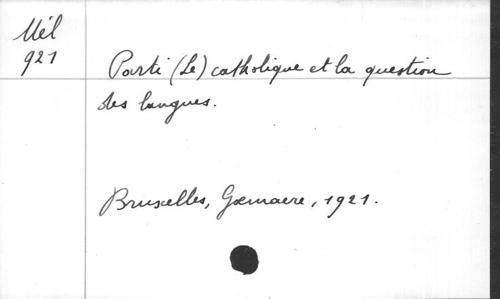 Mél
921
Parti (Le) catholique et la question
des langues.
Bruxelles, Goemaere, 1921.